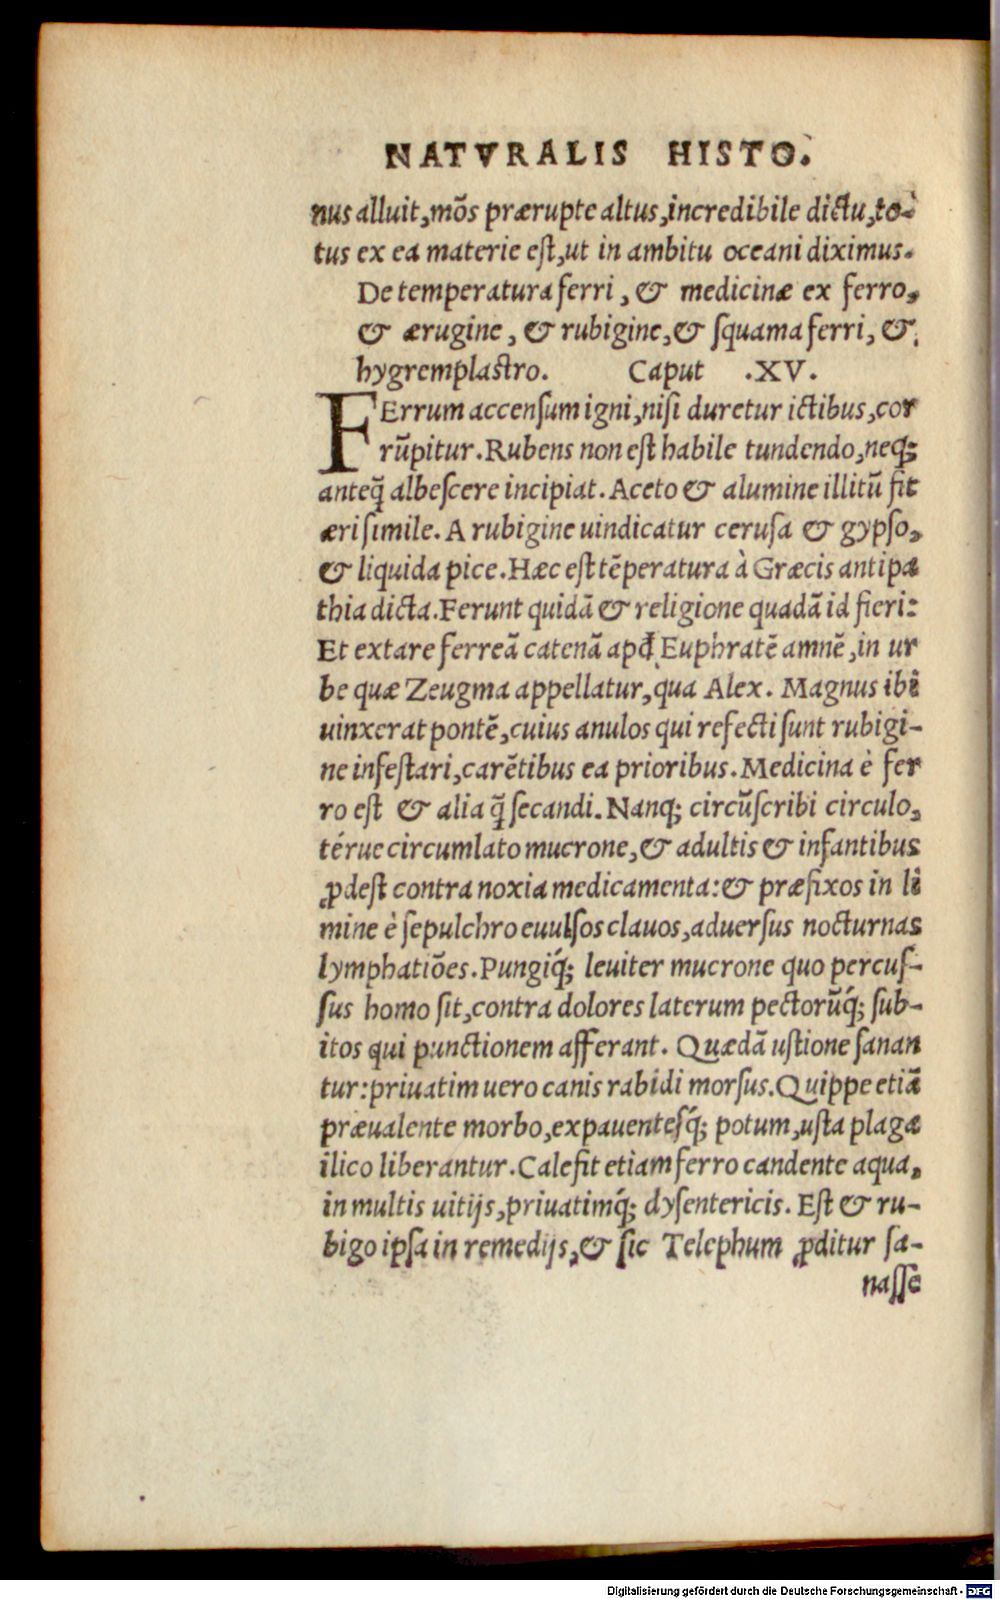 NATVRALIS HISTO.
nus alluit, mõs prærupte altus, incredibile dictu, to-
tus ex ea materie est, ut in ambitu oceani diximus.
De temperatura ferri, & medicinæ ex ferro,
& ærugine, & rubigine, & squama ferri, &
hygremplastro. Caput .XV.
FErrum accensum igni, nisi duretur ictibus, cor
rũpitur. Rubens non est habile tundendo, neq;
anteq̃ albescere incipiat. Aceto & alumine illitũ fit
æri simile. A rubigine uindicatur cerusa & gypso,
& liquida pice. Hæc est tẽperatura à Græcis antipa
thia dicta. Ferunt quidã & religione quadã id fieri:
Et extare ferreã catenã apđ Euphratẽ amnẽ, in ur
be quæ Zeugma appellatur, qua Alex. Magnus ibi
uinxerat pontẽ, cuius anulos qui refecti sunt rubigi-
ne infestari, carẽtibus ea prioribus. Medicina è fer
ro est & alia q̃ secandi. Nanq; circũscribi circulo,
térue circumlato mucrone, & adultis & infantibus
ꝓdest contra noxia medicamenta: & præfixos in li
mine è sepulchro euulsos clauos, aduersus nocturnas
lymphatiões. Pungiq́; leuiter mucrone quo percus-
sus homo sit, contra dolores laterum pectorũq́; sub-
itos qui punctionem afferant. Quædã ustione sanan
tur: priuatim uero canis rabidi morsus. Quippe etiã
præualente morbo, expauentesq́; potum, usta plaga
ilico liberantur. Calefit etiam ferro candente aqua,
in multis uitijs, priuatimq́; dysentericis. Est & ru-
bigo ipsa in remedijs, & sic Telephum ꝓditur sa-
nasse
Digitalisierung gefördert durch die Deutsche Forschungsgemeinschaft - DFG